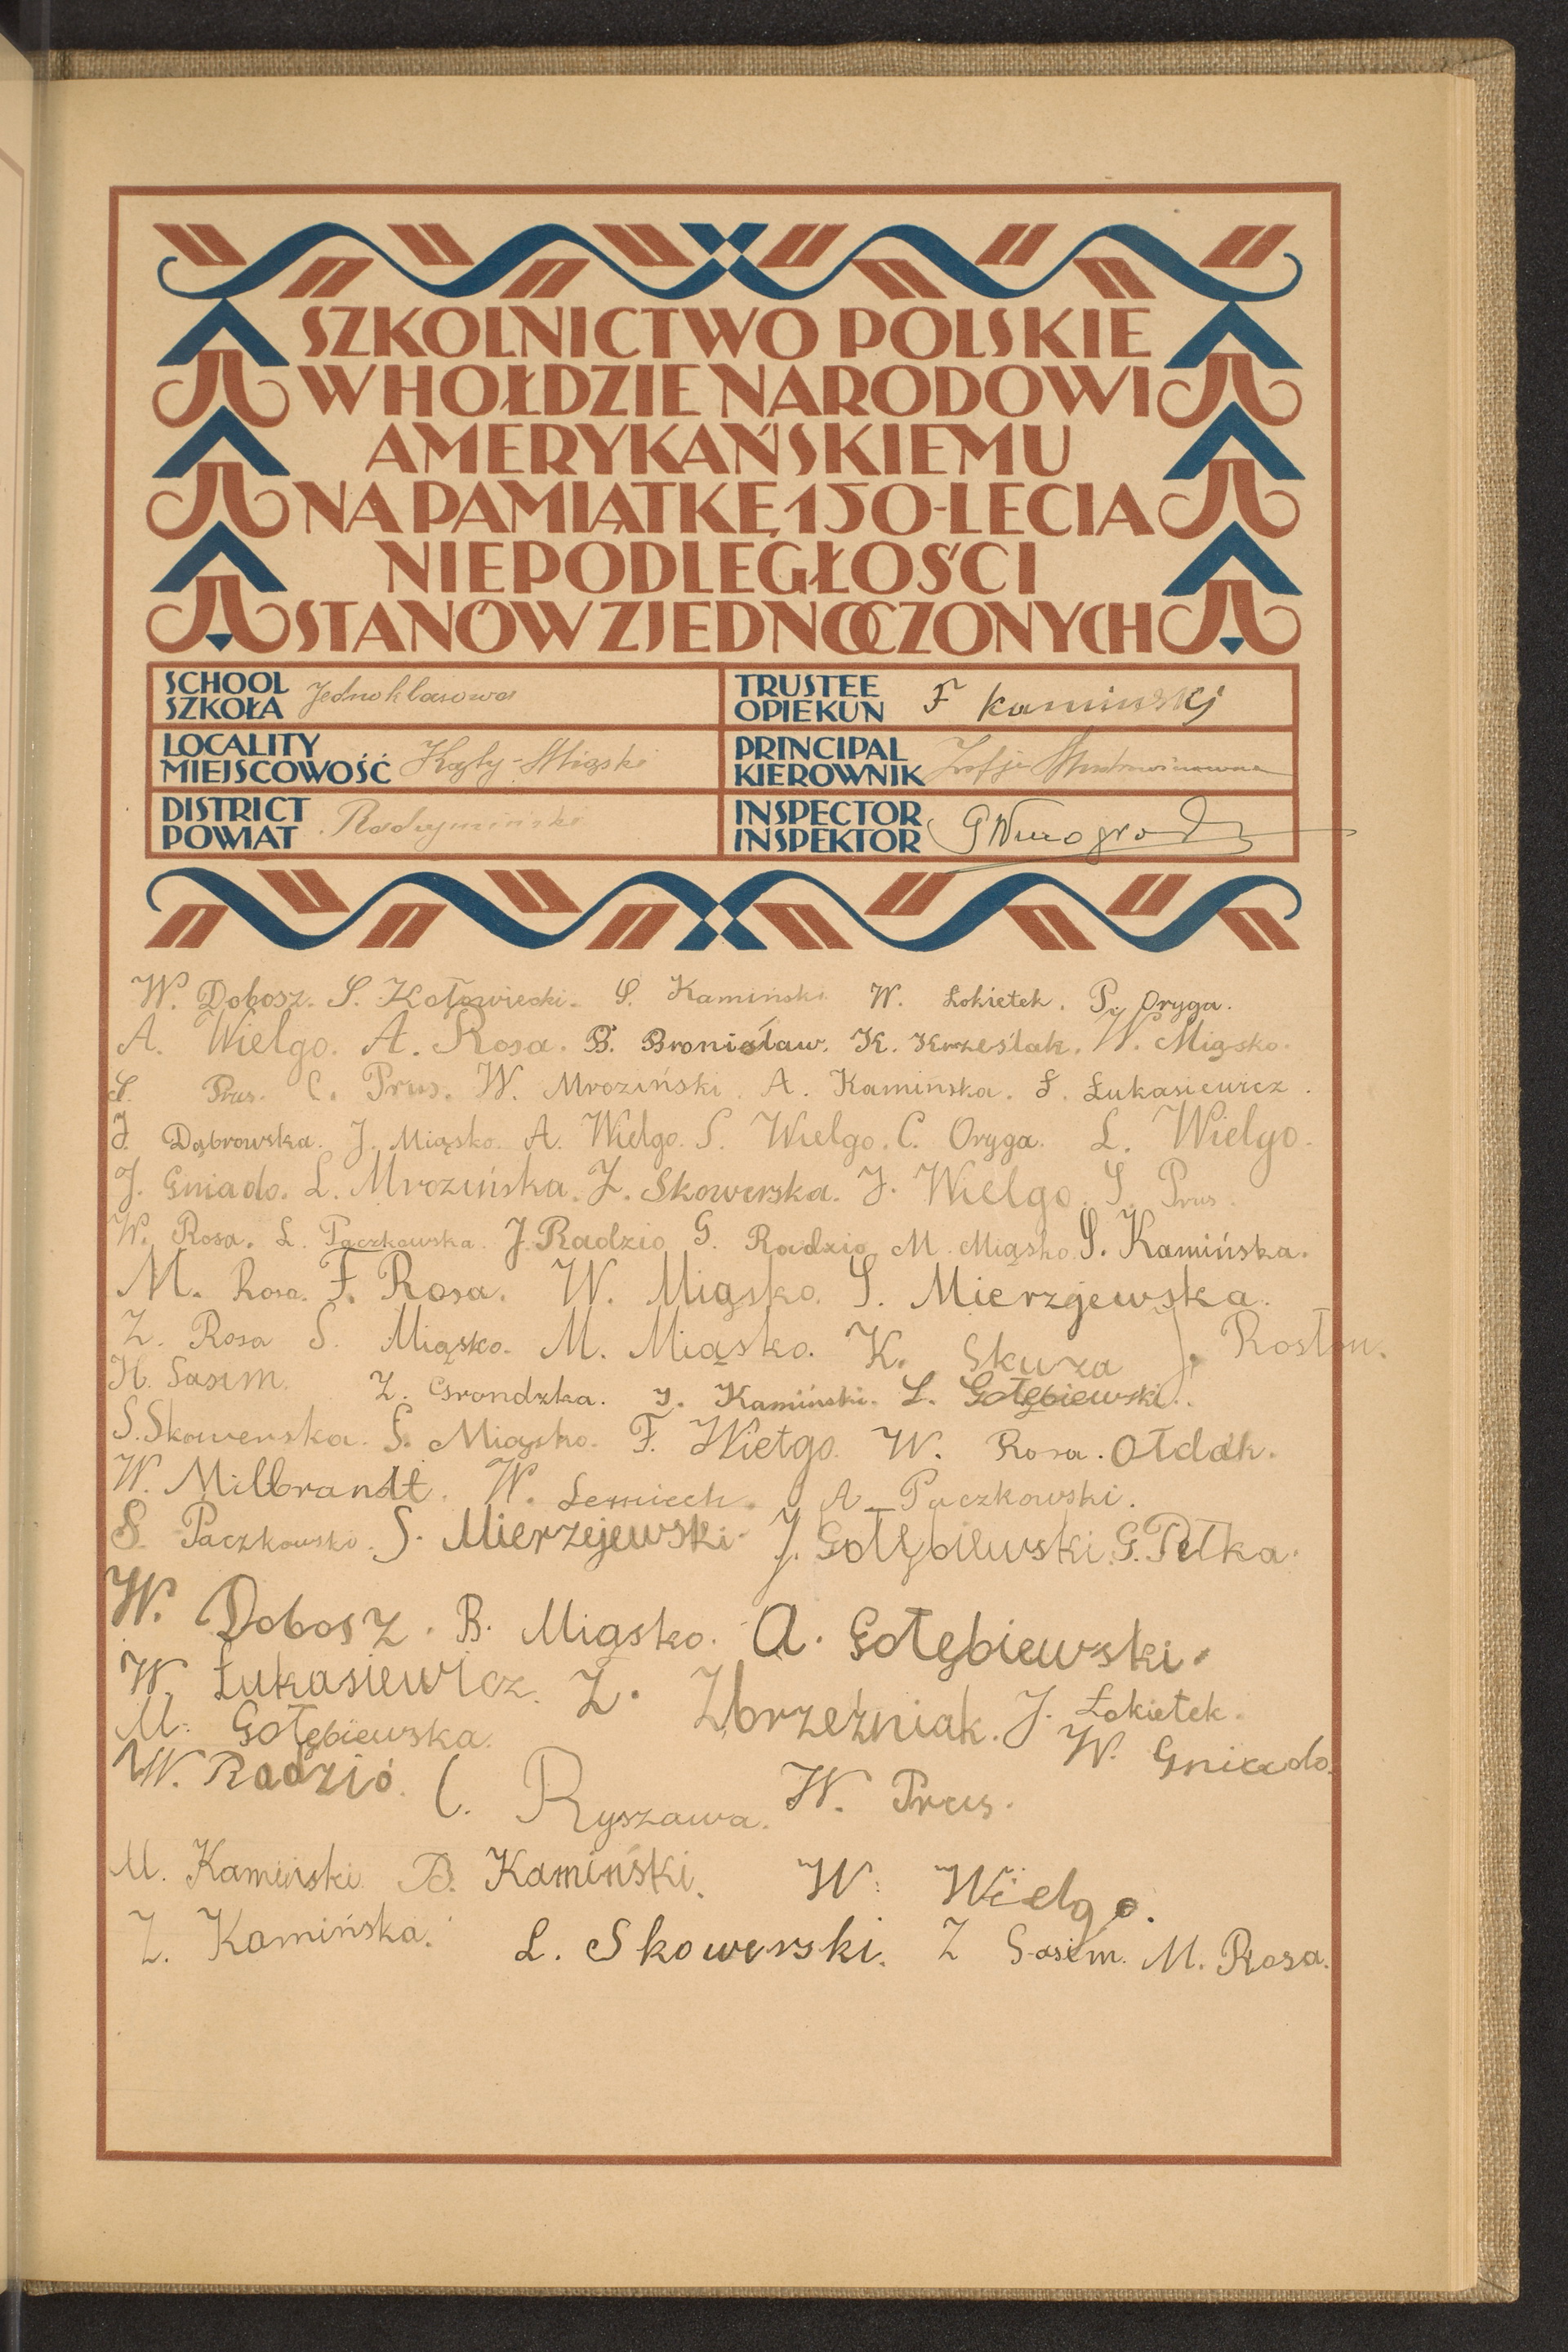 SZKOLNICTWO POLSKIE
W HOŁDZIE NARODOWI
AMERYKAŃSKIEMU
NA PAMIĄTKĘ 150-LECIA
NIEPODLEGŁOŚCI
STANÓW ZJEDNOCZONYCH
SCHOOL
SZKOŁA Jednoklasowa
TRUSTEE
OPIEKUN F Kaminski
LOCALITY
MIEJSCOWOŚĆ Kąty-Miąski
PRINCIPAL
KIEROWNIK Zofja
DISTRICT
POWIAT Radzymiński
INSPECTOR
INSPEKTOR
W. Dobosz. S. Kołowiecki. S. Kamiński W. Łokietek. P. Oryga.
A. Wielgo. A. Rosa. B. Bronisław. K. Krześlak. W. Miąsko.
S. Prus. C. Prus. W. Mroziński. A. Kamińska. Ł. Łukasiewicz.
J. Dąbrowska. J. Miąsko. A. Wielgo. S. Wielgo. C. Oryga. L. Wielgo.
J. Gniado. L. Mrozińska. Z. Skowerska. J. Wielgo. S. Prus.
W. Rosa. L. Pączkowska. J. Radzio G. Radzio M. Miąsko S. Kamińska.
M. Rosa. F. Rosa. W. Miąsko. S. Mierzejewska.
Z. Rosa S. Miąsko. M. Miąsko. K. Skuza J. Rosłon.
H. Sasim. Z. Grondzka. J. Kamiński. L. Gołębiewski.
S. Skowerska. S. Miąsko. F. Wielgo. W. Rosa. Ołdak.
W. Milbrandt. W. Lemiech. A. Paczkowski.
S. Paczkowski. S. Mierzejewski. J. Gołębiewski. G. Pełka.
W. Dobosz. B. Miąsko. A. Gołębiewski.
W. Łukasiewicz. Z. Zbrzeźniak. J. Łokietek.
M. Gołębiewska. W. Gniado.
W. Radzio. C. Ryszawa. W. Prus.
M. Kamiński B. Kamiński. W. Wielgo.
Z. Kamińska. L. Skowerski. Z Sasim. M. Rosa.